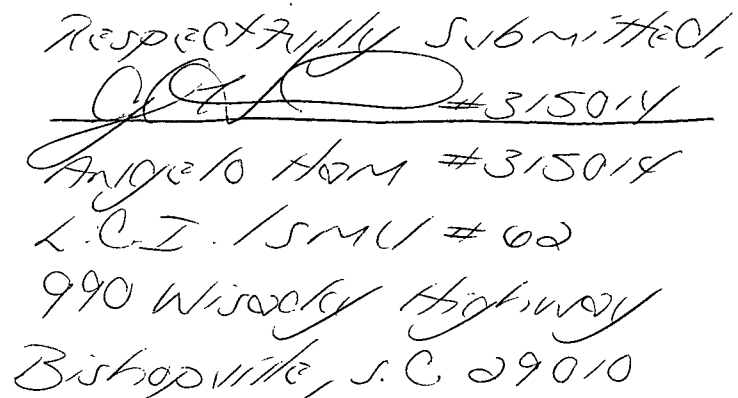 Respectfully Submitted,
#315014
Angelo Ham #315014
L.C.I. / SMU #62
990 Wisacky Highway
Bishopville, S.C. 29010